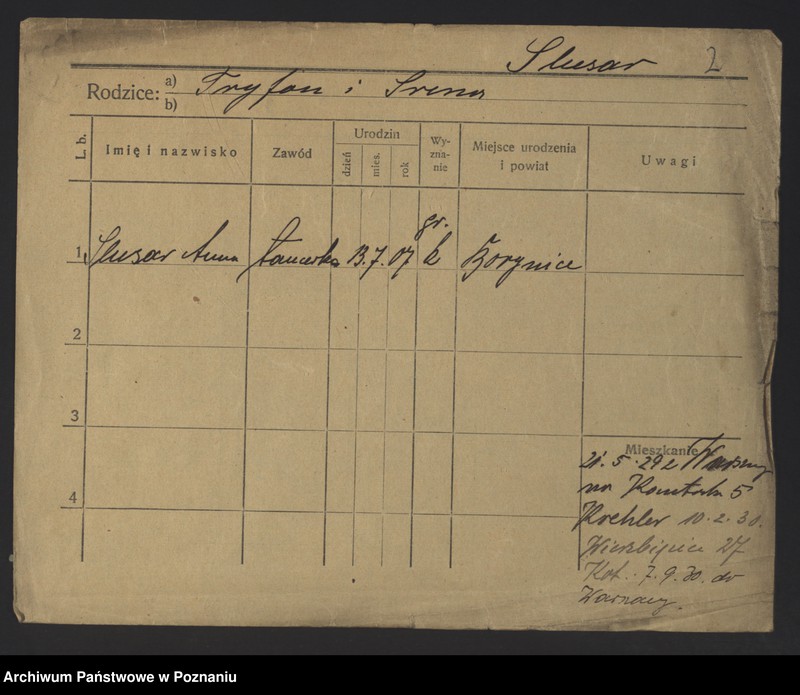 Slusar 2
Rodzice: a) Tryfon i Irena
b)
L. b. Imię i nazwisko Zawód Urodzin dzień mies. rok Wy-zna-nie Miejsce urodzenia i powiat Uwagi
gr.
1 Slusar Anna tancerka 13. 7. 07 k Borynice
2
3
Mieszkanie
21. 5. 29 z Warszawy
4 na Kantaka 5
Koehler 10. 2. 30.
Wierzbięcice 27
Kot. 7. 9. 30. do
Warszawy.
Archiwum Państwowe w Poznaniu